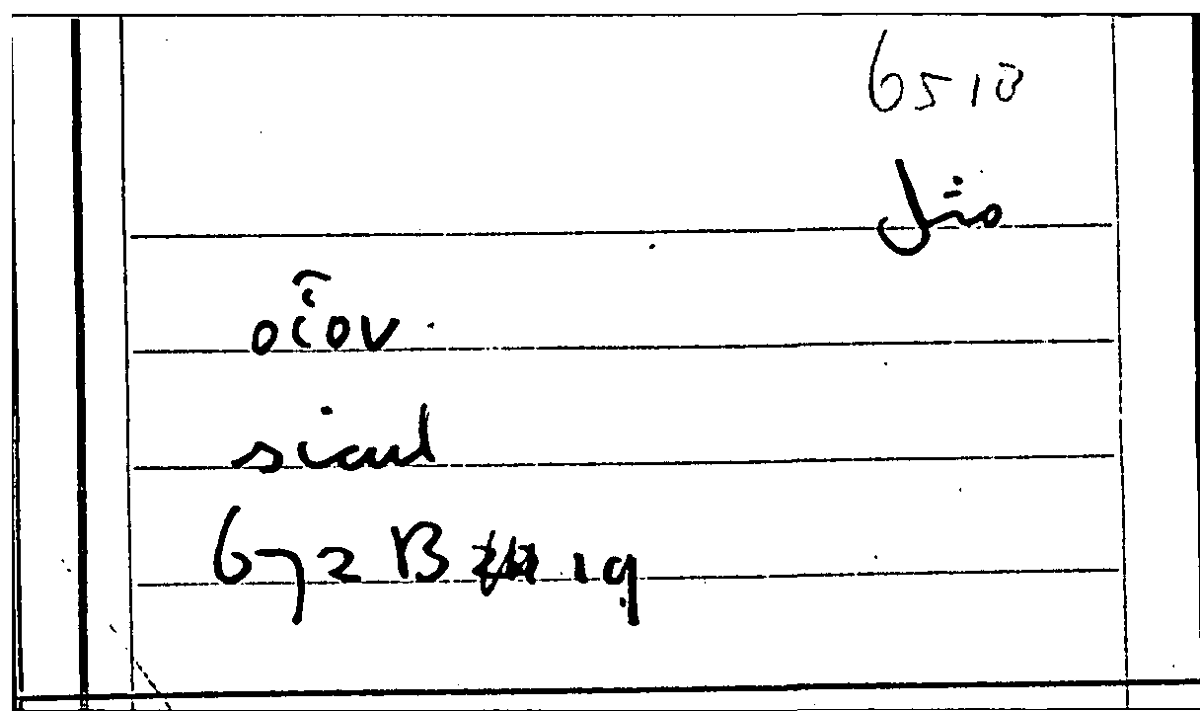 6510
مثل
οἷον
sicud
672 B 19